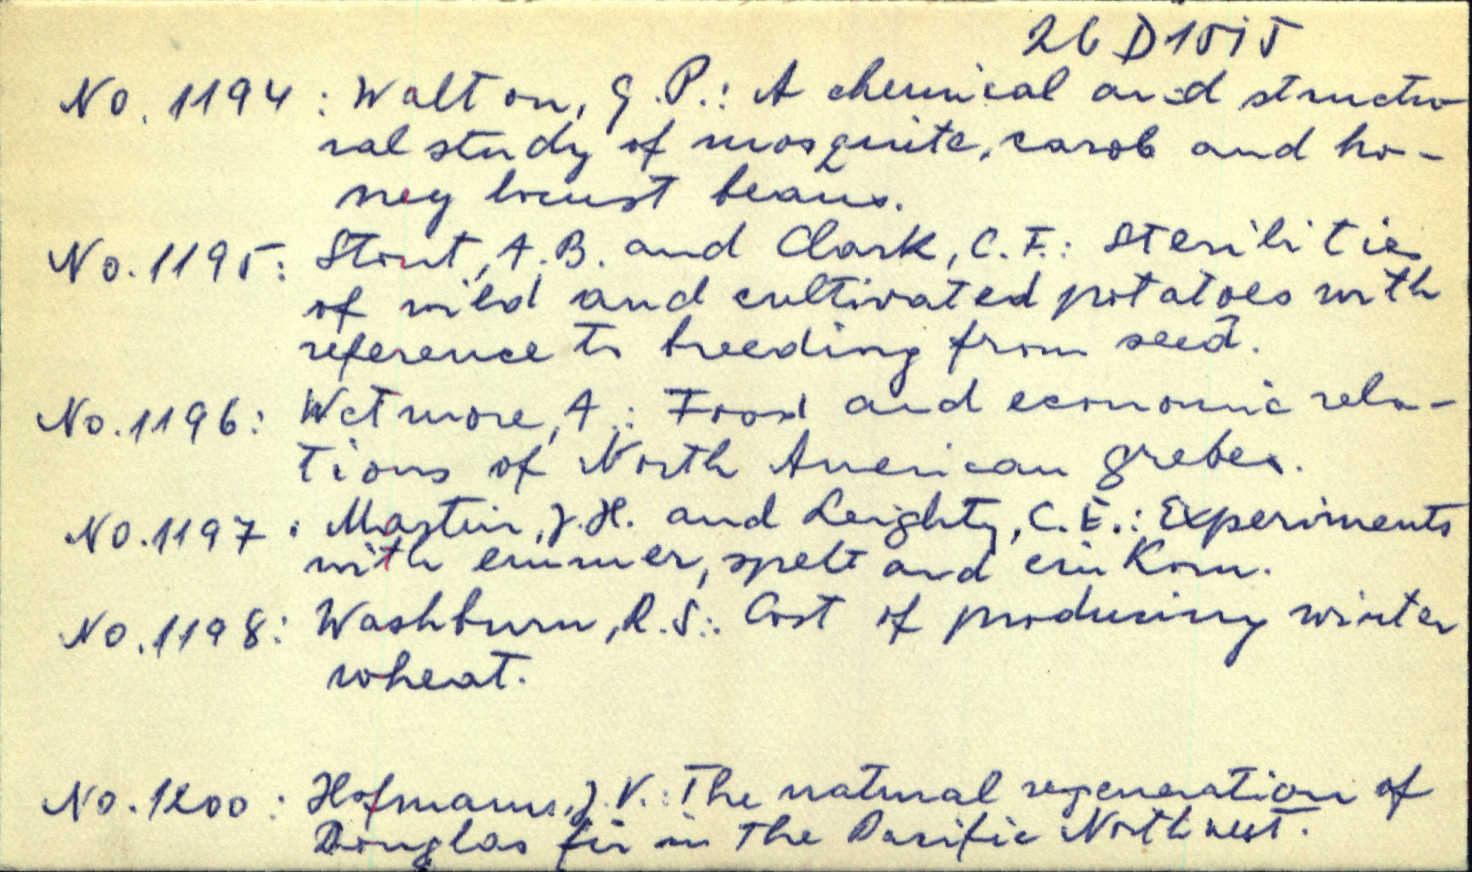 26 D 1515
No. 1194 : Walton, G. P.: A chemical and structu-
ral study of mosquite, carob and ho-
ney locust beans.
No. 1195: Stout, A. B. and Clark, C. F.: Sterilities
of wild and cultivated potatoes with
reference to breeding from seed.
No. 1196: Wetmore, A.: Food and economic rela-
tions of North American grebes.
No. 1197: Martin, J. H. and Leighty, C. E.: Experiments
with emmer, spelt and einkorn.
No. 1198: Washburn, R. S.: Cost of producing winter
wheat.
No. 1200: Hofmann, J. V.: The natural regeneration of
Douglas fir in the Pacific Northwest.